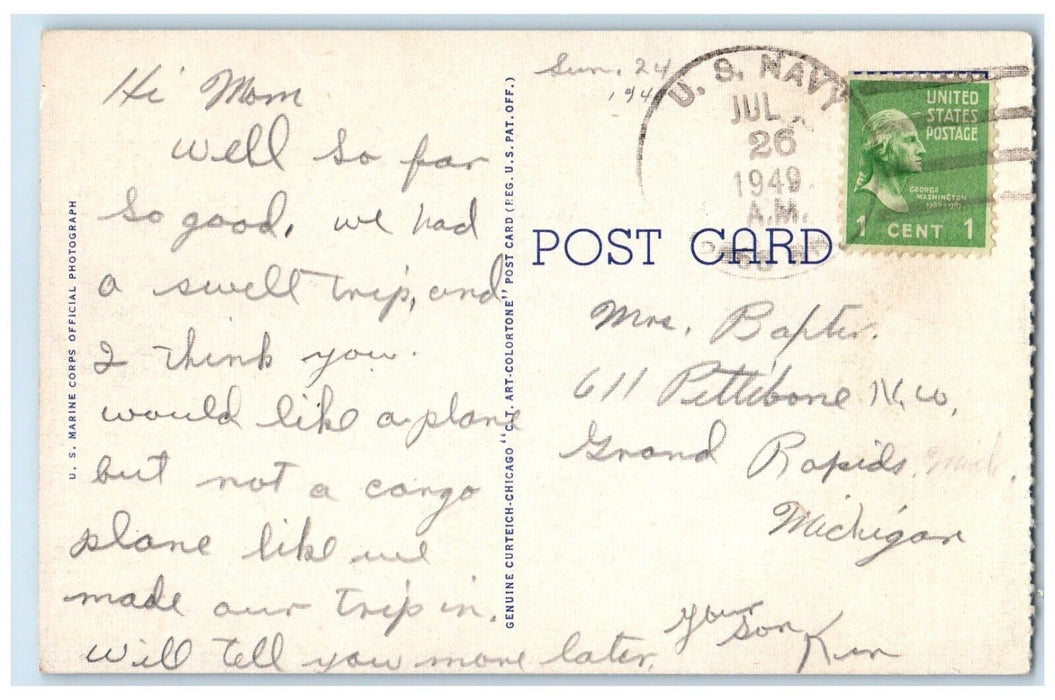 Hi Mom
Well so far
so good, we had
a swell trip, and
I think you
would like a plane
but not a cargo
plane like we
made our trip in.
Will tell you more later.
your
son Ken
U. S. MARINE CORPS OFFICIAL PHOTOGRAPH
GENUINE CURTEICH-CHICAGO "C.T. ART-COLORTONE" POST CARD (REG. U.S. PAT. OFF.)
Sun. 24
U. S. NAVY
JUL
26
1949
A.M.
UNITED
STATES
POSTAGE
GEORGE
WASHINGTON
1 CENT 1
POST CARD
Mrs. Baxter.
611 Pettibone N.W.
Grand Rapids, Mich.
Michigan